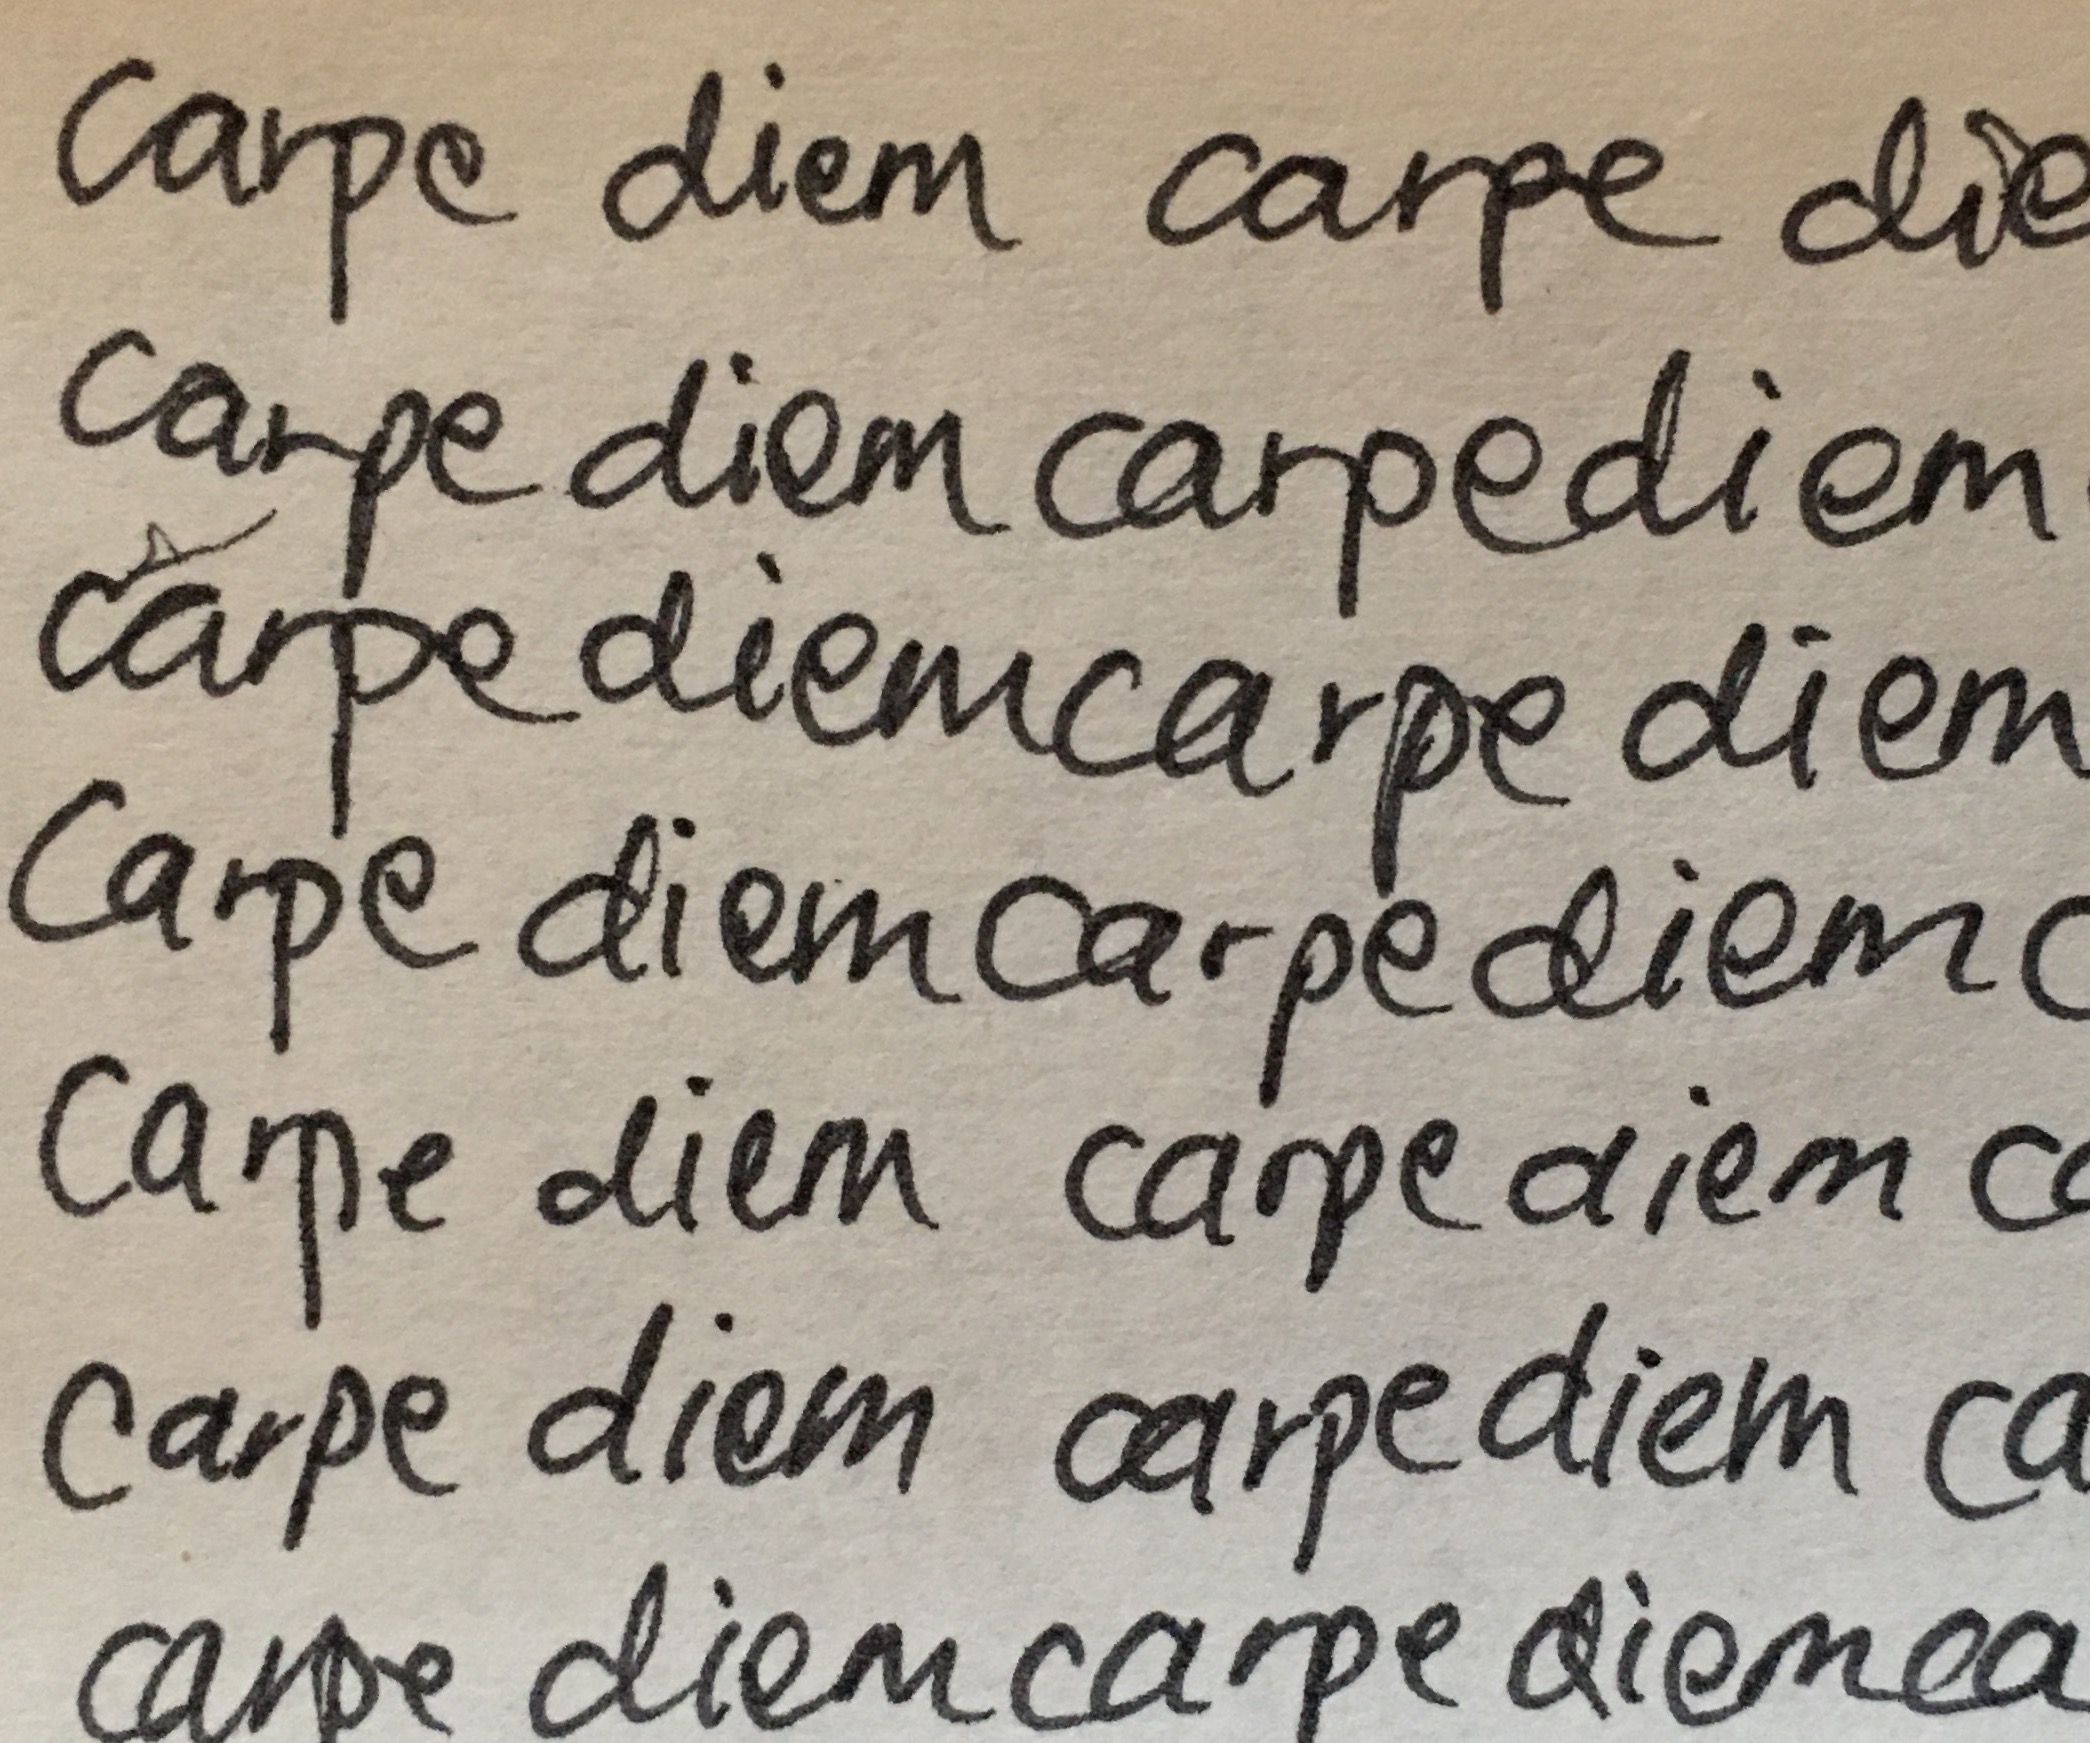 Carpe diem carpe die
carpe diem carpediem
carpe diemcarpe diem
Carpe diemcarpediem c
Carpe diem carpe diem ca
Carpe diem carpediem ca
carpe diemcarpe diemca